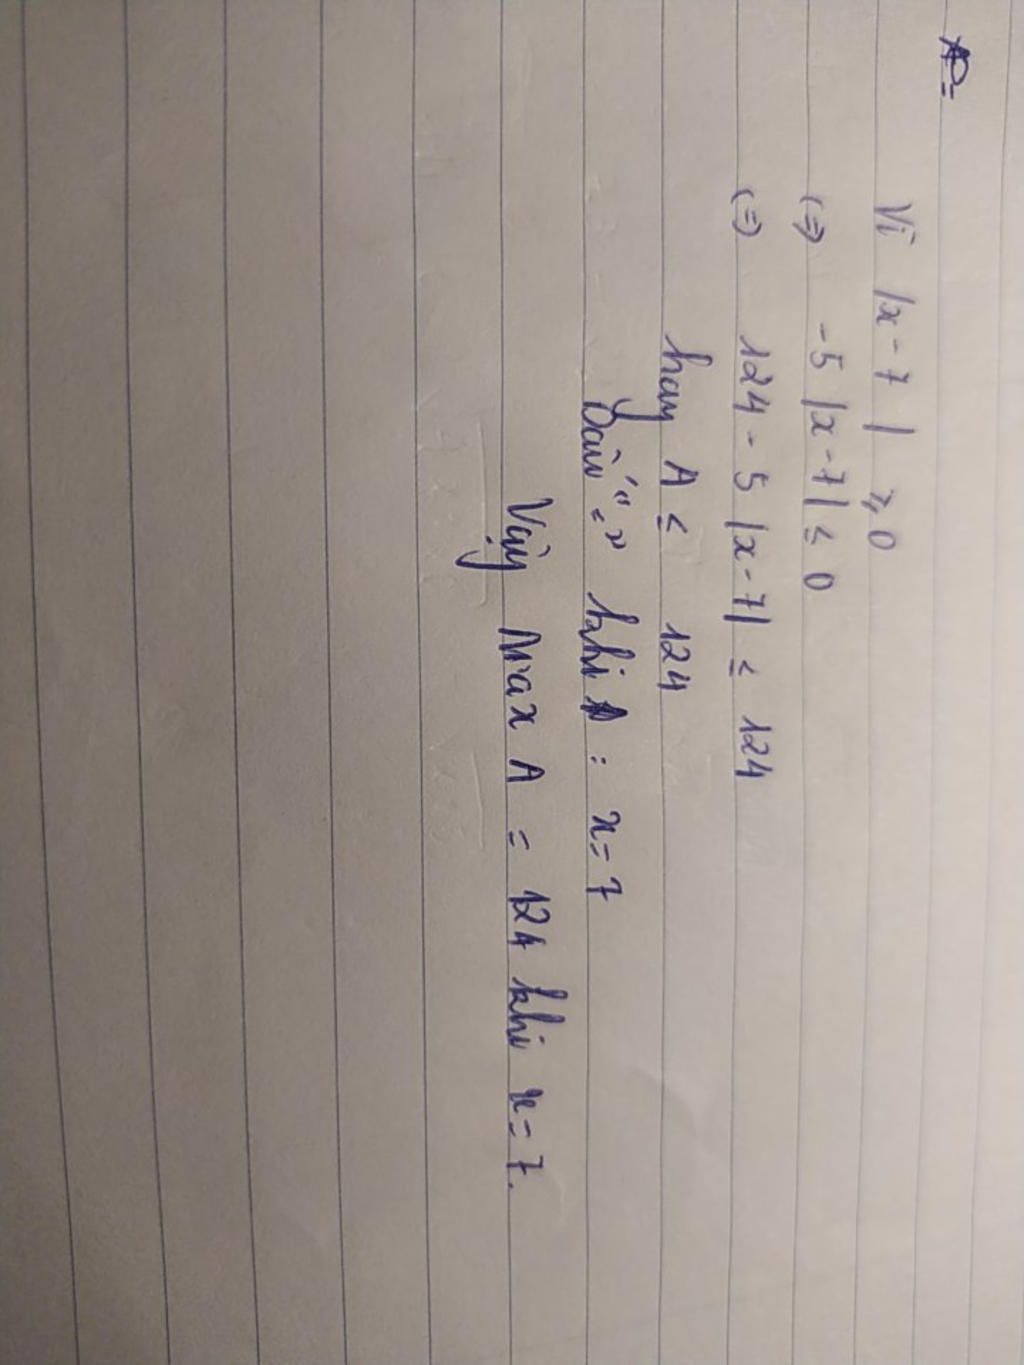 Vì |x-7| ≥ 0
(=) -5|x-7| ≤ 0
(=) 124 - 5|x-7| ≤ 124
hay A ≤ 124
Dấu "=" khi : x=7
Vậy Max A = 124 khi x=7.